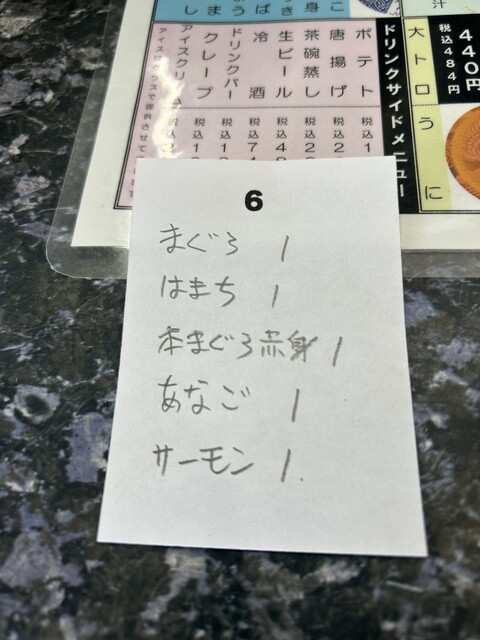 ドリンクサイドメニュー
ポテト 税込1
唐揚げ 税込2
茶碗蒸し 税込2
生ビール 税込4
冷酒 税込7
ドリンクバー 税込1
クレープ 税込1
アイスクリーム
440円
税込484円
大トロ
うに
6
まぐろ 1
はまち 1
本まぐろ赤身 1
あなご 1
サーモン 1.